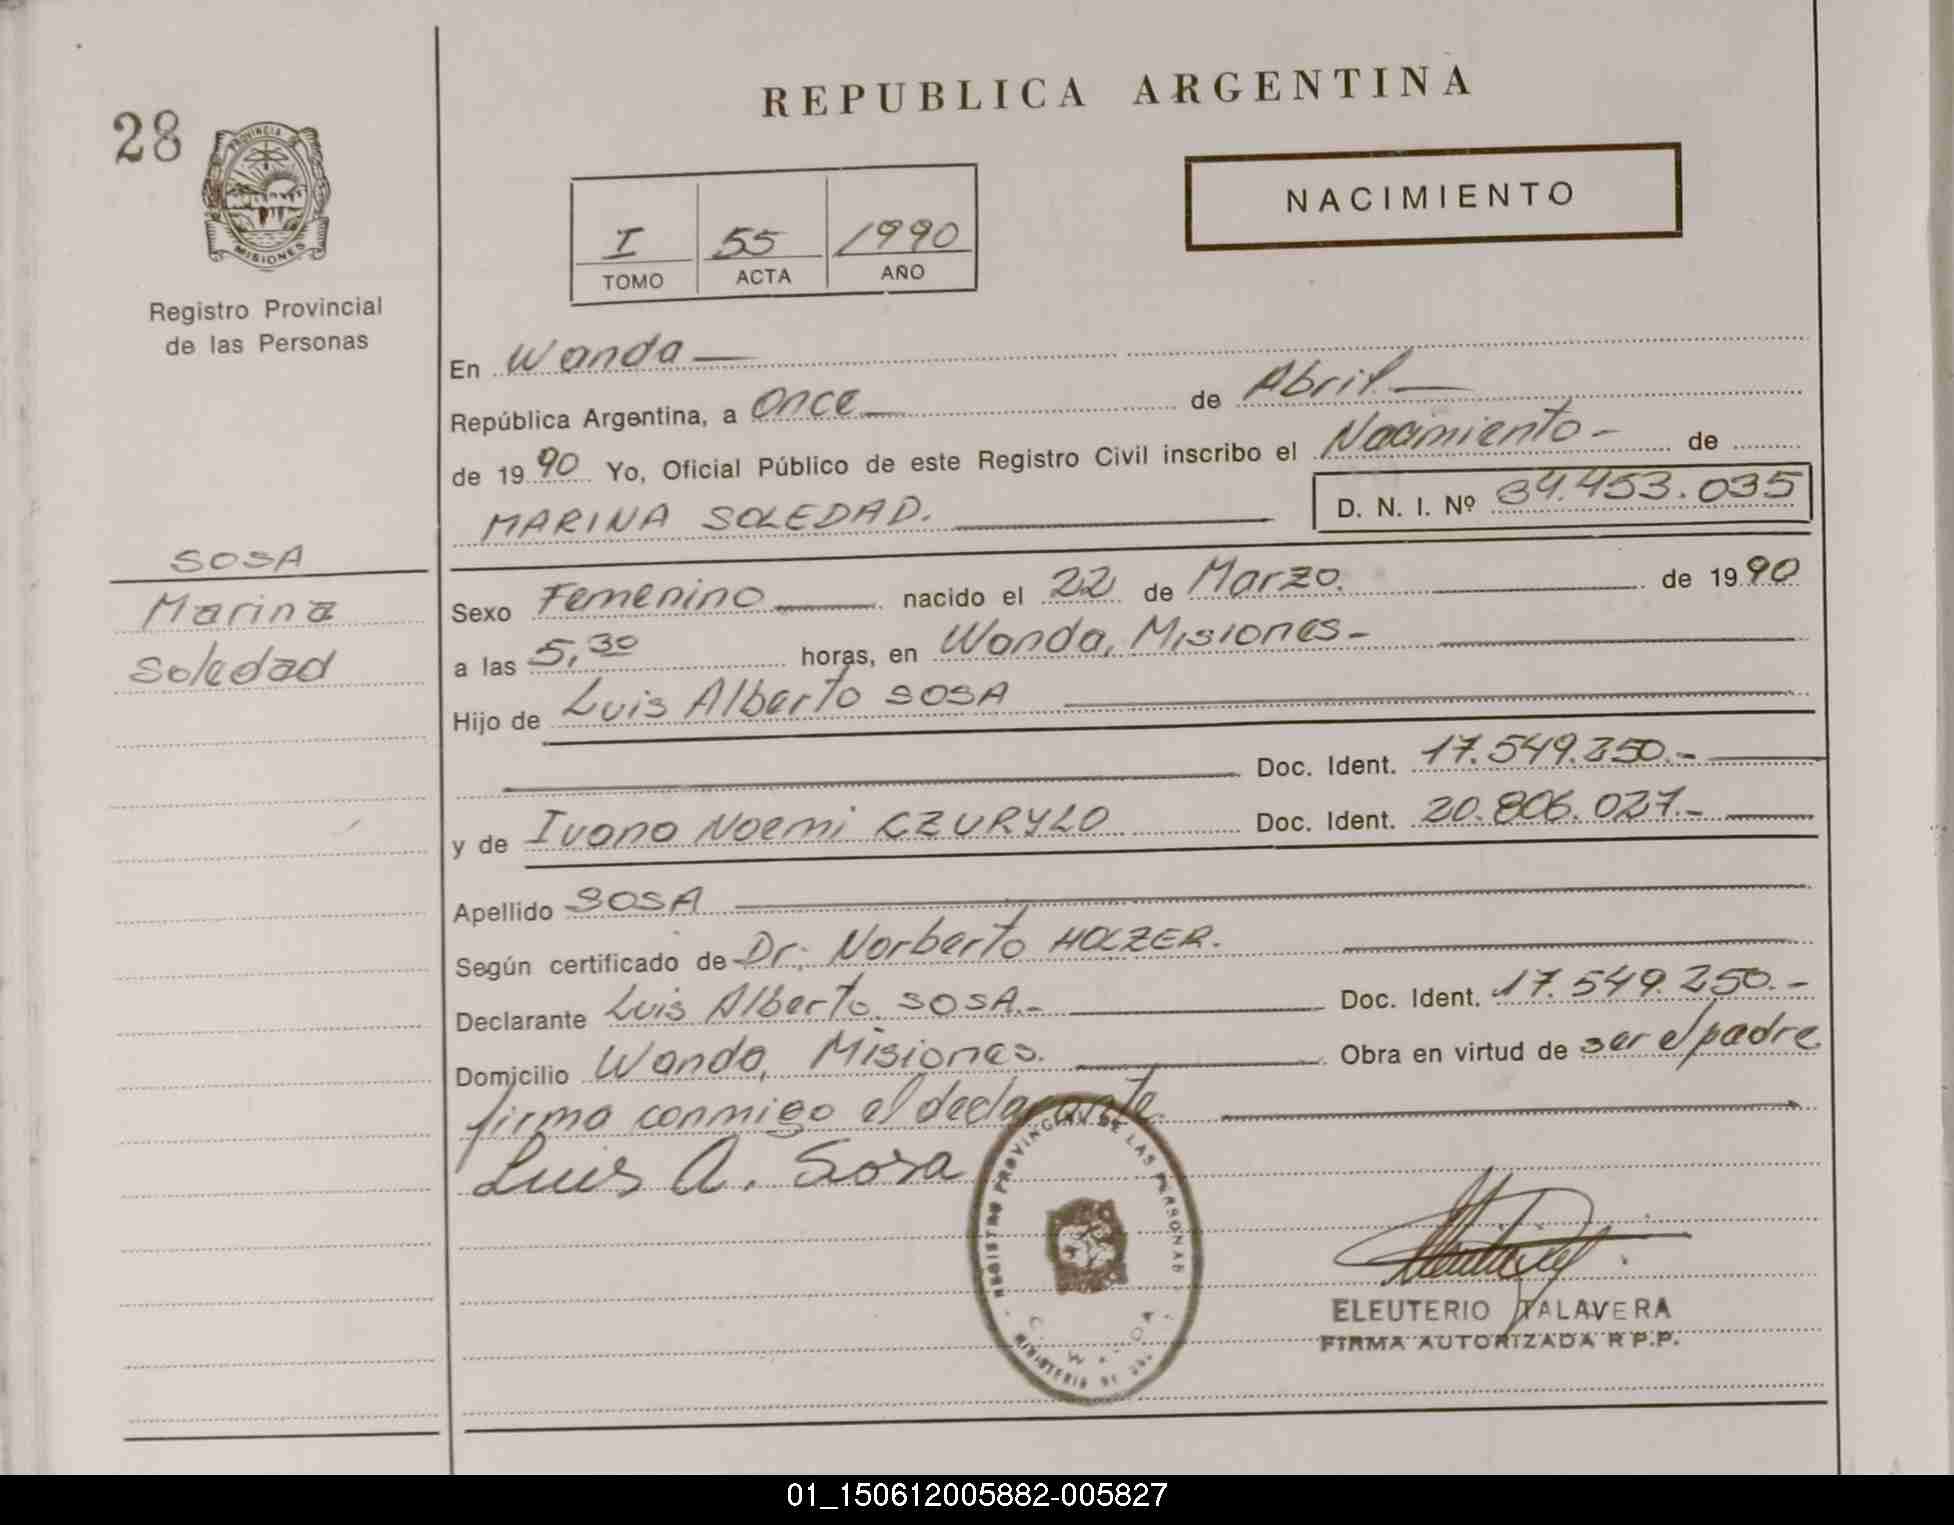 REPUBLICA ARGENTINA
28
PROVINCIA DE
MISIONES
NACIMIENTO
I 55 1990
TOMO ACTA AÑO
Registro Provincial
de las Personas
En Wanda —
República Argentina, a Once — de Abril. —
de 1990 Yo, Oficial Público de este Registro Civil inscribo el Nacimiento - de
MARINA SOLEDAD. — D. N. I. Nº 34.453.035
SOSA
Marina
Soledad
Sexo Femenino — nacido el 22 de Marzo. — de 1990
a las 5,30 horas, en Wanda, Misiones. —
Hijo de Luis Alberto SOSA —
— Doc. Ident. 17.549.250.- —
y de Ivana Noemi CZURYLO Doc. Ident. 20.806.027.- —
Apellido SOSA —
Según certificado de Dr. Norberto HOLZER. —
Declarante Luis Alberto SOSA.- — Doc. Ident. 17.549.250.-
Domicilio Wanda, Misiones. — Obra en virtud de ser el padre
firma conmigo el declarante. —
Luis A. Sosa
REGISTRO PROVINCIAL DE LAS PERSONAS
ELEUTERIO TALAVERA
FIRMA AUTORIZADA R.P.P.
01_150612005882-005827